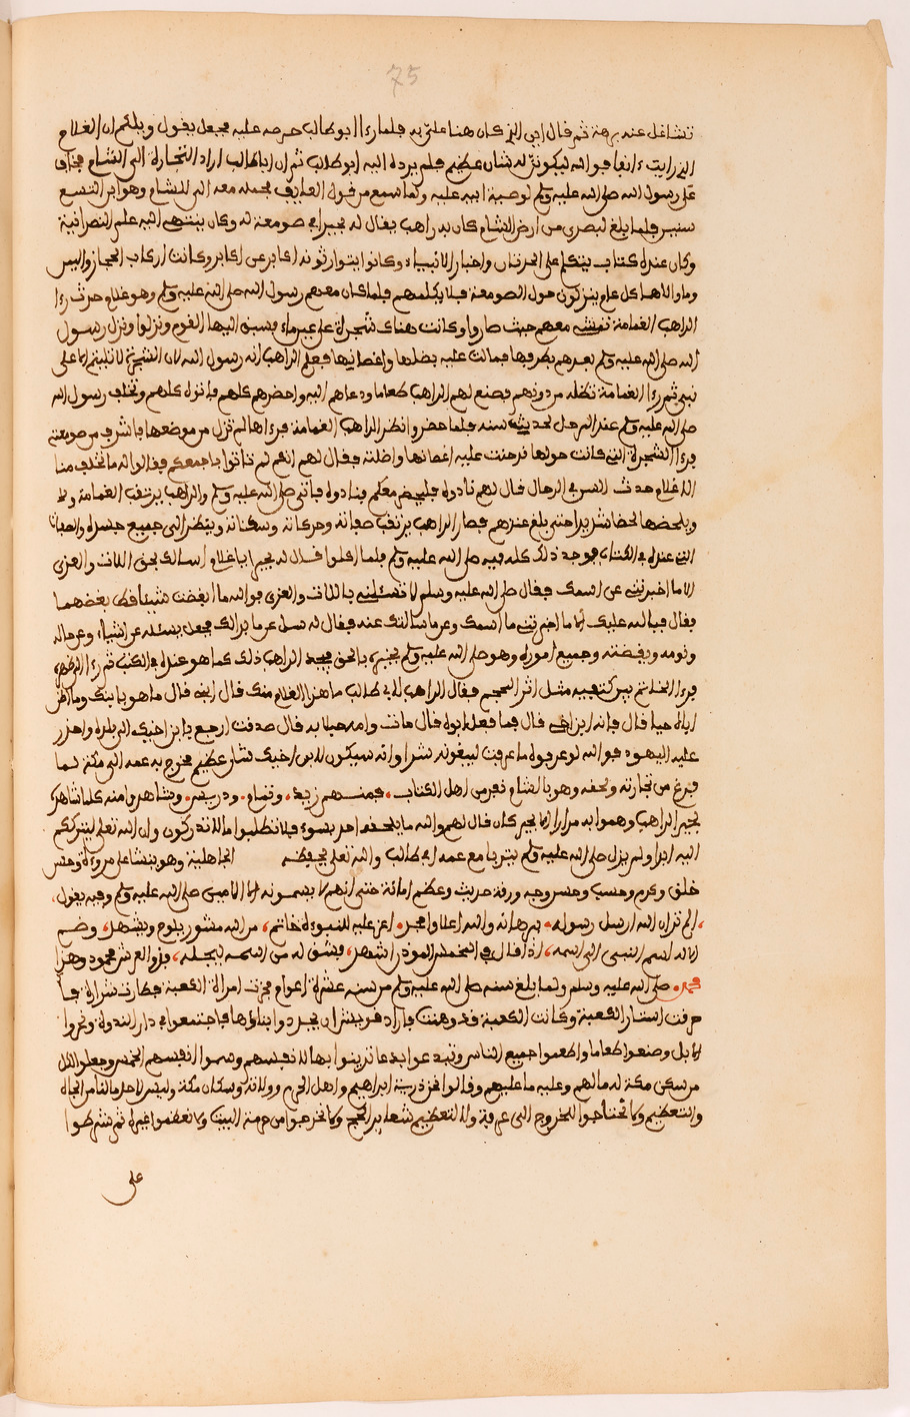 75
تشاغل عنه برهة ثم قال اين الذي كان هنا علي به فلما رءا ابو طالب حرصه عليه فجعل يقول ويلكم ان الغلام
الذي رايت ءانفا فوالله ليكونن له شان عظيم فلم يرده اليه ابو طالب ثم ان ابا طالب اراد التجارة الى الشام فخاف
على رسول الله صلى الله عليه وسلم لوصية ابيه عليه ولما سمع من قول العايف فحمله معه الى الشام وهو ابن التسع
سنين فلما بلغ لبصرى من ارض الشام كان به راهب يقال له بحيرا في صومعة له وكان ينتهي اليه علم النصرانية
وكان عنده كتاب يتكلم على الحدثان واخبار الانبياء وكانوا يتوارثونه اكابر عن اكابر وكانت اركاب الحجاز واليمن
وما والاها كل عام ينزلون حول الصومعة فلا يكلمهم فلما كان معهم رسول الله صلى الله عليه وسلم وهو غلام حدث رءا
الراهب الغمامة تمشي معهم حيث صاروا وكانت هناك شجرة على عين ماء فسبق اليها القوم ونزلوا ونزل رسول
الله صلى الله عليه وسلم بعدهم بطرفها فمالت عليه بظلها واغصانها فعلم الراهب انه رسول الله لان الشجرة لا تلين الا على
نبي ثم رءا الغمامة تظله من دونهم فصنع لهم الراهب طعاما ودعاهم اليه واحضرهم كلهم فانزله كلهم وتخلف رسول الله
صلى الله عليه وسلم عند الرحل لحديث سنه فلما حضروا نظر الراهب الغمامة فرءاها لم تزل من موضعها فاشرف من صومعته
فرءا الشجرة التي كانت حولها قد حنت عليه اغصانها واظلته فقال لهم انكم لم تاتوا باجمعكم فقالوا له ما تخلف منا
الا غلام حدث السن في الرحال قال لهم نادوه فليحضر معكم فنادوه فاتى صلى الله عليه وسلم والراهب يرتقب الغمامة
ويلحظها لحظا شديدا حتى بلغ عندهم فصار الراهب يرتقب صفاته وحركاته وسكناته وينظر الى جميع جسده والصفات
التي عنده في الكتاب فوجد ذلك كله فيه صلى الله عليه وسلم فلما اكلوا قال له بحيرا يا غلام اسالك بحق اللات والعزى
الا ما اخبرتني عن اسمك فقال صلى الله عليه وسلم لا تسئلني باللات والعزى فوالله ما ابغضت شيئا قط بغضهما
فقال فبالله عليك الا ما اخبرتني ما اسمك وعن ما سالتك عنه فقال له سل عن ما بدا لك فجعل يسئله عن اشياء وعن حاله
ونومه ويقضته وجميع اموره وهو صلى الله عليه وسلم يخبره بالحق فيجد الراهب ذلك كما هو عنده في الكتب ثم رءا الى ظهره
فرءا الخاتم بين كتفيه مثل اثر المحجم فقال الراهب لابي طالب ما هذا الغلام منك قال ابني قال ما هو بابنك وما اظن
اباه حيا قال فانه ابن اخي قال فما فعل ابوه قال مات وامه حبلا به قال صدقت ارجع بابن اخيك الى بلده واحذر
عليه اليهود فوالله لو عرفوه ما عرفت ليبغونه شرا وانه سيكون لابن اخيك شان عظيم فخرج به عمه الى مكة لما
فرغ من تجارته ولحقه وهو بالشام نفر من اهل الكتاب فمنهم زيد وتمام ودريس وشاهدوا منه كلما شاهد
بحيرا الراهب وهموا به مرارا الا بحيرا كان قال لهم والله ما يلحقه احد بسوء فلا تطلبوا ما لا تدركون وان الله تعلى لينزلكم
اليه ابدا ولم يزل صلى الله عليه وسلم يتربا مع عمه ابي طالب والله تعلى يحفظه الجاهلية وهو ينشا على مروءة وحسن
خلق وكرم وحسب وحسن وجه وصدق حديث وعظم امانة حتى انهم لا يسمونه الا الامين صلى الله عليه وسلم وفيه يقول
الم تر ان الله ارسل رسوله ببرهانه والله اعلا وامجد اغر عليه للنبوءة خاتم من الله مشهور يلوح ويشهد وضم
الاله اسم النبي الى اسمه اذا قال في الخمس الموذن اشهد فشق له من اسمه ليجله فذو العرش محمود وهذا
محمد صلى الله عليه وسلم ولما بلغ سنه صلى الله عليه وسلم من سنه عشرة اعوام فجرت امراة الكعبة فطارت شرارة فا
حرقت استار الكعبة وكانت الكعبة قد وهنت فاراد قريش ان يجددوا بناؤها فاجتمعوا في دار الندوة ونحروا
الابل وصنعوا طعاما واطعموا جميع الناس وتبدعوا بدعا تزينوا بها لانفسهم وسموا انفسهم الحمس وجعلوا لكل
من سكن مكة له مالهم وعليه ما عليهم وقالوا نحن ذرية ابراهيم واهل الحرم وولاة وسكان مكة وليس لاحد مالنا من الجاه
والتعظيم ولا نحتاجوا للخروج الى عرفة ولا لتعظيم شعاير الحج ولا نخرجوا من حرمة البيت ولا نعظموا غيره ثم شرطوا
على